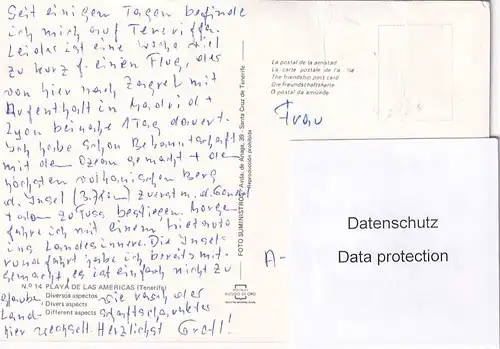 Seit einigen Tagen befinde
ich mich auf Teneriffa.
Leider ist eine Woche viel
zu kurz f. einen Flug, der
von hier nach Zagreb mit
Aufenthalt in Madrid +
Lyon beinahe 1 Tag dauert.
Ich habe schon Bekanntschaft
mit dem Ozean gemacht + den
höchsten vulkanischen Berg
d. Insel (3.718m) zuerst m. d. Gondel
+ dann zu Fuss bestiegen. Morgen
fahre ich mit einem Mietauto
ins Landesinnere. Die Insel-
rundfahrt habe ich bereits mit-
gemacht, es ist einfach nicht zu
glauben wie rasch der
Landschaftscharakter
hier wechselt. Herzlichst Grell!
N.º 14 PLAYA DE LAS AMERICAS (Tenerife)
Diversos aspectos
Divers aspects
Different aspects
FOTO SUMINISTROS - Avda. de Anaga, 39 - Santa Cruz de Tenerife
Reproducción prohibida
La postal de la amistad
La carte postale de l'a
The friendship post card
Die freundschaftskarte
O postal da amizade
Frau
A-
Datenschutz
Data protection